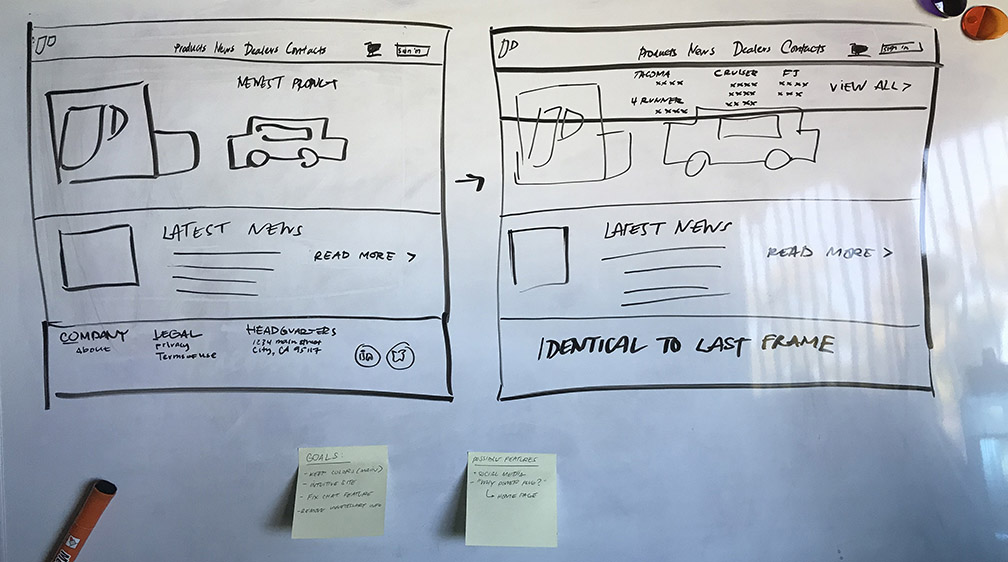 JD
Products News Dealers Contacts
Sign in
NEWEST PRODUCT
JD
LATEST NEWS
READ MORE >
COMPANY
ABOUT
LEGAL
Privacy
Terms of use
HEADQUARTERS
1234 main street
City, CA 95117
JD
Products News Dealers Contacts
Sign in
TACOMA
xxxx
4 RUNNER
xxxx
CRUISER
xxxx
xxxx
xx xx
FJ
xxxx
xxx
VIEW ALL >
JD
LATEST NEWS
READ MORE >
IDENTICAL TO LAST FRAME
GOALS:
- KEEP COLORS (MAIN)
- INTUITIVE SITE
- FIX CHAT FEATURE
- REMOVE UNNECESSARY INFO
POSSIBLE FEATURES
- SOCIAL MEDIA
- "WHY POWER PLUG?"
↳ HOME PAGE